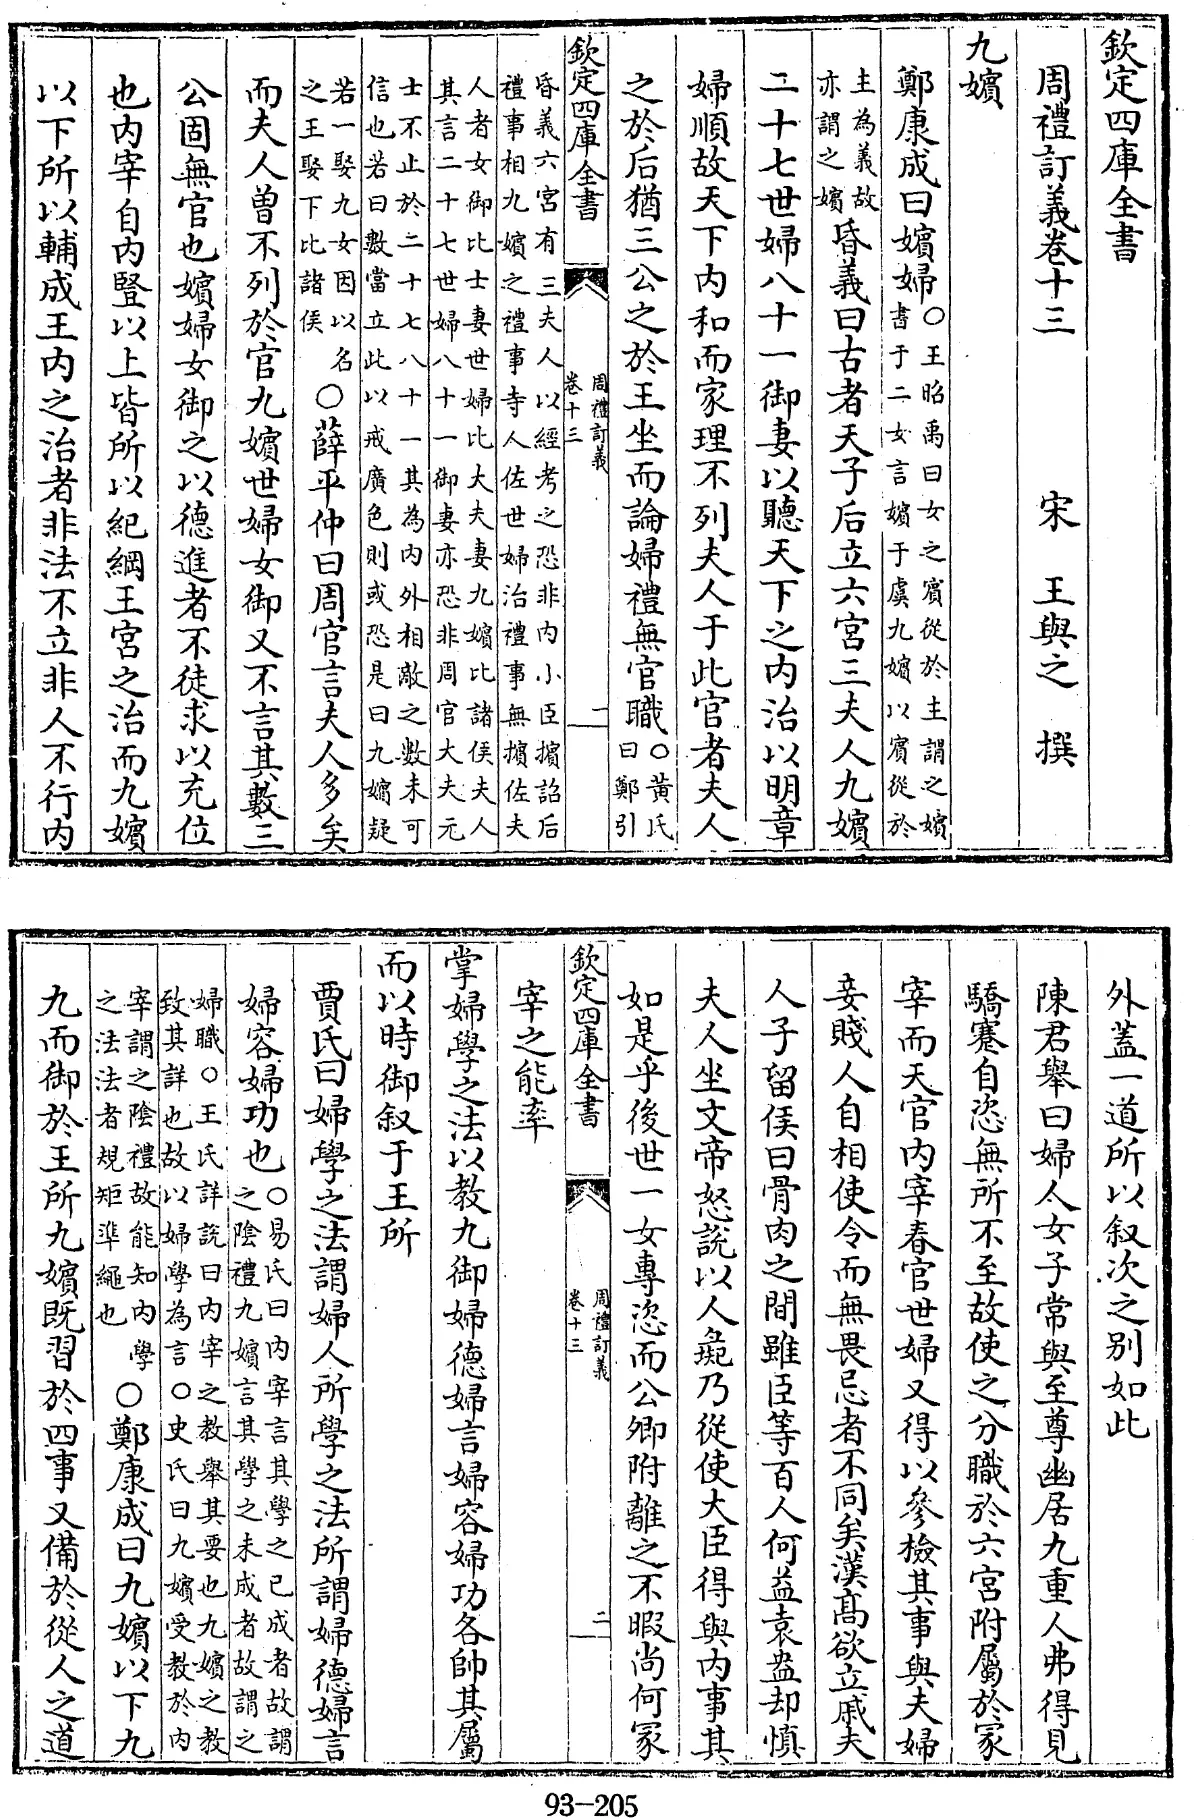 欽定四庫全書
周禮訂義卷十三 宋 王與之 撰
九嬪
鄭康成曰嬪婦○王昭禹曰女之賓從於主謂之嬪書于二女言嬪于虞九嬪以賓從於
主為義故亦謂之嬪昏義曰古者天子后立六宮三夫人九嬪
二十七世婦八十一御妻以聽天下之内治以明章
婦順故天下内和而家理不列夫人于此官者夫人
之於后猶三公之於王坐而論婦禮無官職○黃氏曰鄭引
欽定四庫全書 周禮訂義卷十三 一
昏義六宮有三夫人以經考之恐非内小臣擯詔后禮事相九嬪之禮事寺人佐世婦治禮事無擯佐夫
人者女御比士妻世婦比大夫妻九嬪比諸侯夫人其言二十七世婦八十一御妻亦恐非周官大夫元
士不止於二十七八十一其為内外相敵之數未可信也若曰數當立此以戒廣色則或恐是曰九嬪疑
若一娶九女因以名之王娶下比諸侯○薛平仲曰周官言夫人多矣
而夫人曾不列於官九嬪世婦女御又不言其數三
公固無官也嬪婦女御之以德進者不徒求以充位
也内宰自内豎以上皆所以紀綱王宮之治而九嬪
以下所以輔成王内之治者非法不立非人不行内
外蓋一道所以叙次之别如此
陳君舉曰婦人女子常與至尊幽居九重人弗得見
驕蹇自恣無所不至故使之分職於六宮附屬於冢
宰而天官内宰春官世婦又得以參檢其事與夫婦
妾賤人自相使令而無畏忌者不同矣漢高欲立戚夫
人子留侯曰骨肉之間雖臣等百人何益袁盎却慎
夫人坐文帝怒說以人彘乃從使大臣得與内事其
如是乎後世一女專恣而公卿附離之不暇尚何冢
欽定四庫全書 周禮訂義卷十三 二
宰之能率
掌婦學之法以教九御婦德婦言婦容婦功各帥其屬
而以時御叙于王所
賈氏曰婦學之法謂婦人所學之法所謂婦德婦言
婦容婦功也○易氏曰内宰言其學之已成者故謂之陰禮九嬪言其學之未成者故謂之
婦職○王氏詳說曰内宰之教舉其要也九嬪之教致其詳也故以婦學為言○史氏曰九嬪受教於内
宰謂之陰禮故能知内學之法法者規矩準繩也○鄭康成曰九嬪以下九
九而御於王所九嬪既習於四事又備於從人之道
93-205